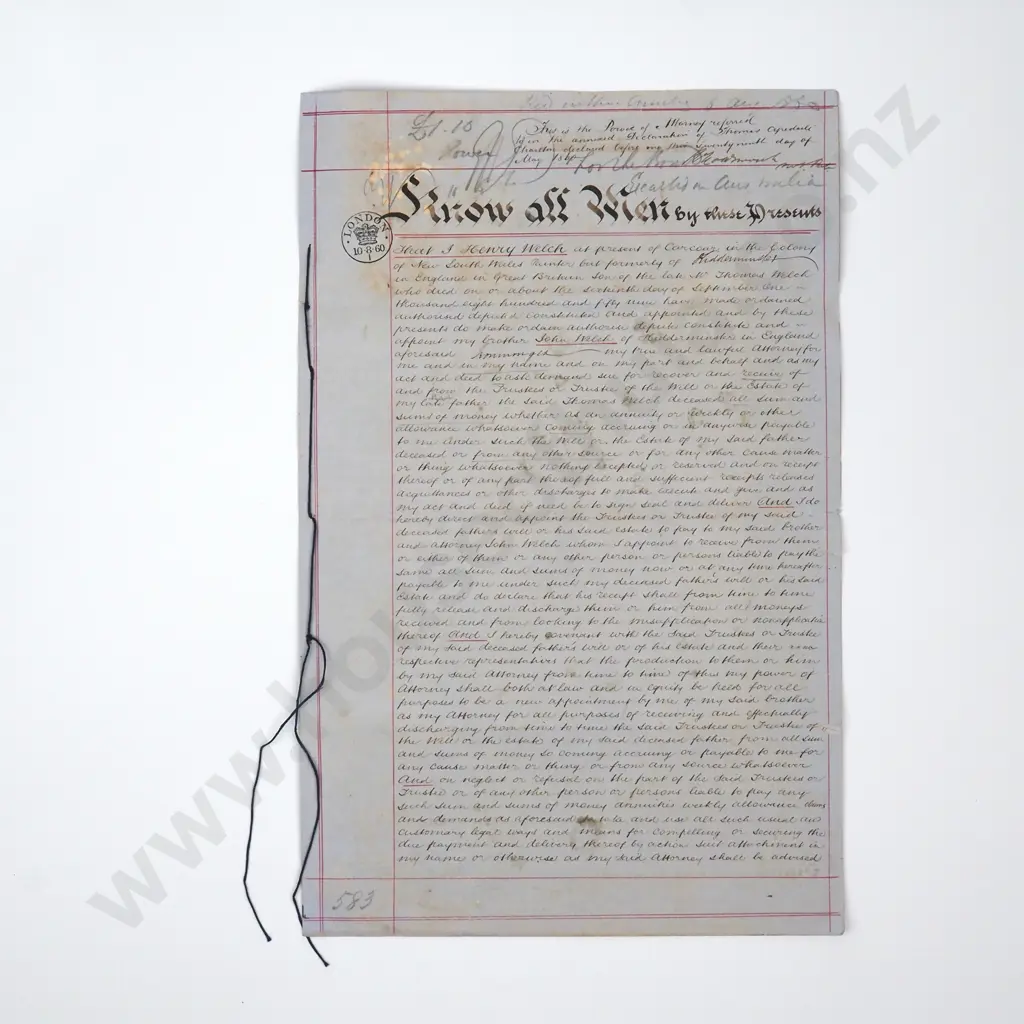 £1.10
Power
This is the Power of Attorney referred
to in the annexed Declaration of Thomas
Charlton declared before me this twenty ninth day of
May 1860
Executed in Australia
Know all Men by these Presents
LONDON
10·8·60
1
That I Henry Welch at present of Carcoar in the Colony
of New South Wales but formerly of Kidderminster
in England in Great Britain Son of the late Mr Thomas Welch
who died on or about the sixteenth day of September One
thousand eight hundred and fifty nine have made ordained
authorised deputed constituted And appointed and by these
presents do make ordain authorise depute constitute and
appoint my brother John Welch of Kidderminster in England
aforesaid my true and lawful Attorney for
me and in my name and on my part and behalf and as my
act and deed to ask demand sue for recover and receive of
and from the Trustees or Trustee of the Will or the Estate of
my late father the said Thomas Welch deceased all sum and
sums of money whether as an annuity or weekly or other
allowance whatsoever coming accruing or in anywise payable
to me under such the Will or the Estate of my said father
deceased or from any other source or for any other cause matter
or thing whatsoever nothing excepted or reserved and on receipt
thereof or of any part thereof full and sufficient receipts releases
acquittances or other discharges to make execute and give and as
my act and deed if need be to sign seal and deliver And I do
hereby direct and appoint the Trustees or Trustee of my said
deceased fathers will or his said Estate to pay to my said brother
and attorney John Welch whom I appoint to receive from them
or either of them or any other person or persons liable to pay the
same all sum and sums of money now or at any time hereafter
payable to me under such my deceased father's will or his said
Estate and do declare that his receipt shall from time to time
fully release and discharge them or him from all moneys
received and from looking to the misapplication or nonapplication
thereof And I hereby covenant with the said Trustees or Trustee
of my said deceased fathers will or of his Estate and their
respective representatives that the production to them or him
by my said Attorney from time to time of this my power of
Attorney shall both at law and in equity be held for all
purposes to be a new appointment by me of my said brother
as my Attorney for all purposes of receiving and effectually
discharging from time to time the said Trustees or Trustee of
the Will or the estate of my said deceased father from all sum
and sums of money so coming accruing or payable to me for
any cause matter or thing or from any source whatsoever
And on neglect or refusal on the part of the said Trustees or
Trustee or of any other person or persons liable to pay any
such sum and sums of money annuities weekly allowance claims
and demands as aforesaid to take and use all such usual and
customary legal ways and means for compelling or securing the
due payment and delivery thereof by action suit attachment in
my name or otherwise as my said Attorney shall be advised
583